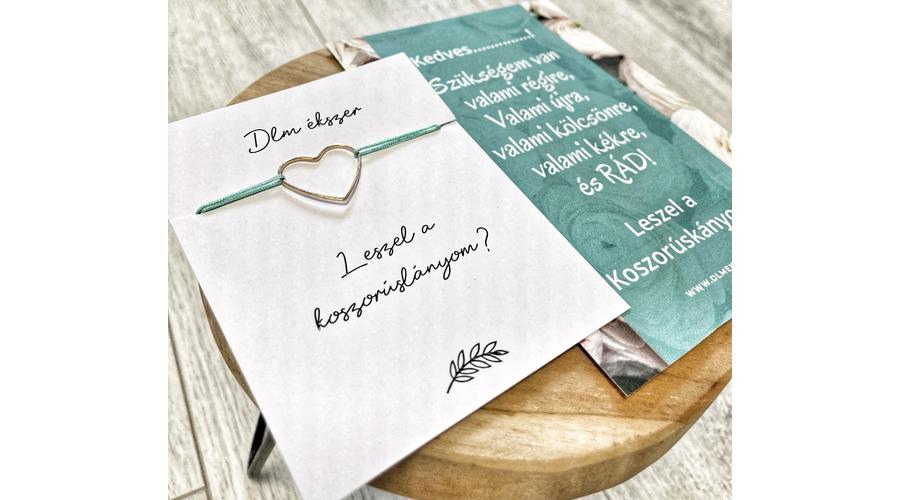 Dlm ékszer
Leszel a
koszorúslányom?
Kedves..............!
Szükségem van
valami régire,
Valami újra,
valami kölcsönre,
valami kékre,
és RÁD!
Leszel a